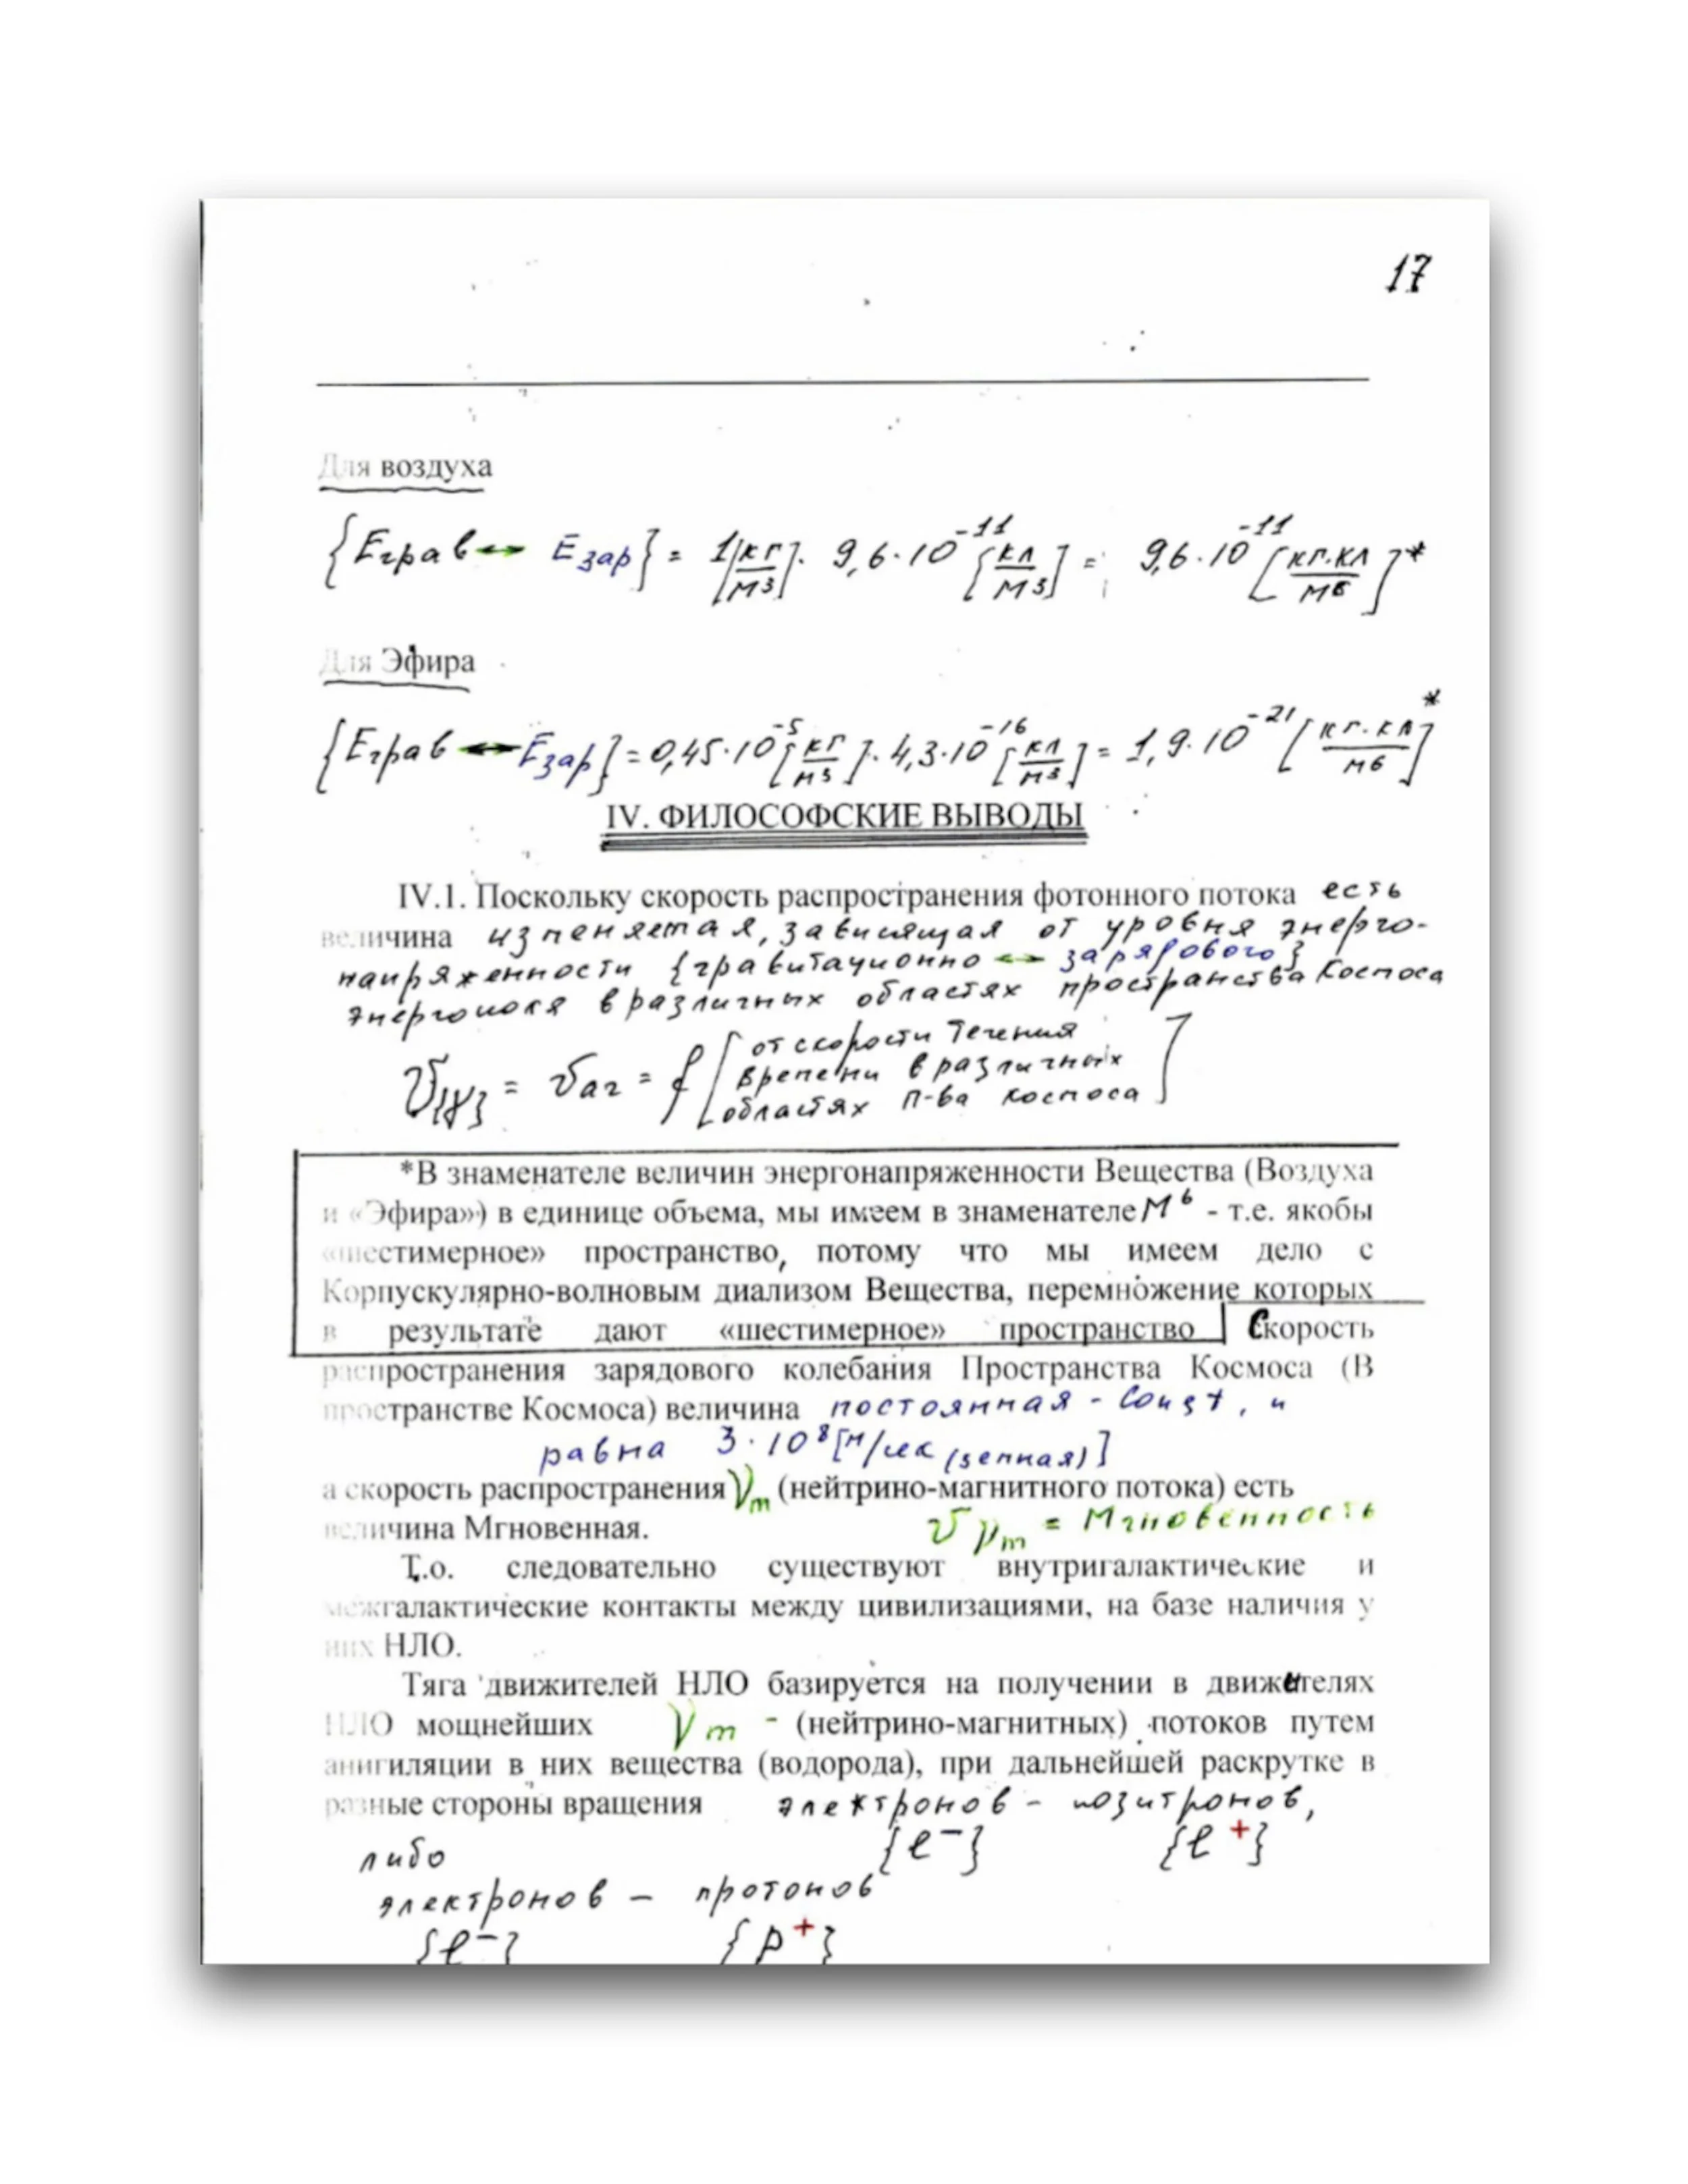 17
Для воздуха
{Eграв ↔ Eзар} = 1[кг/м³]· 9,6·10⁻¹¹ [кл/м³] = 9,6·10⁻¹¹ [кг·кл/м⁶]*
Для Эфира
{Eграв ↔ Eзар} = 0,45·10⁻⁵ [кг/м³]· 4,3·10⁻¹⁶ [кл/м³] = 1,9·10⁻²¹ [кг·кл/м⁶]*
IV. ФИЛОСОФСКИЕ ВЫВОДЫ
IV.1. Поскольку скорость распространения фотонного потока есть
величина изменяемая, зависящая от уровня энерго-
напряженности {гравитационно ↔ зарядового}
энергополя в различных областях пространства Космоса
= = f [от скорости Течения
Времени в различных
областях п-ва Космоса]
*В знаменателе величин энергонапряженности Вещества (Воздуха
и «Эфира») в единице объема, мы имеем в знаменателе М⁶ - т.е. якобы
«шестимерное» пространство, потому что мы имеем дело с
Корпускулярно-волновым диализом Вещества, перемножение которых
в результате дают «шестимерное» пространство Скорость
распространения зарядового колебания Пространства Космоса (В
пространстве Космоса) величина постоянная - Const, и
равна 3·10⁸[м/сек (земная)]
а скорость распространения νm (нейтрино-магнитного потока) есть
величина Мгновенная. v νm = Мгновенность
Т.о. следовательно существуют внутригалактические и
межгалактические контакты между цивилизациями, на базе наличия у
них НЛО.
Тяга движителей НЛО базируется на получении в движителях
НЛО мощнейших νm - (нейтрино-магнитных) потоков путем
анигиляции в них вещества (водорода), при дальнейшей раскрутке в
разные стороны вращения электронов - позитронов,
либо {e⁻} {e⁺}
электронов — протонов
{e⁻} {p⁺}